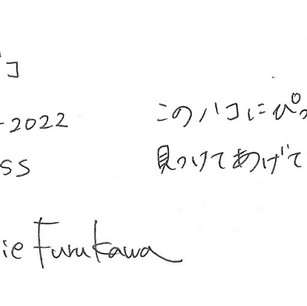 コ
-2022
このハコにぴっ
ss
見つけてあげて
ie Furukawa